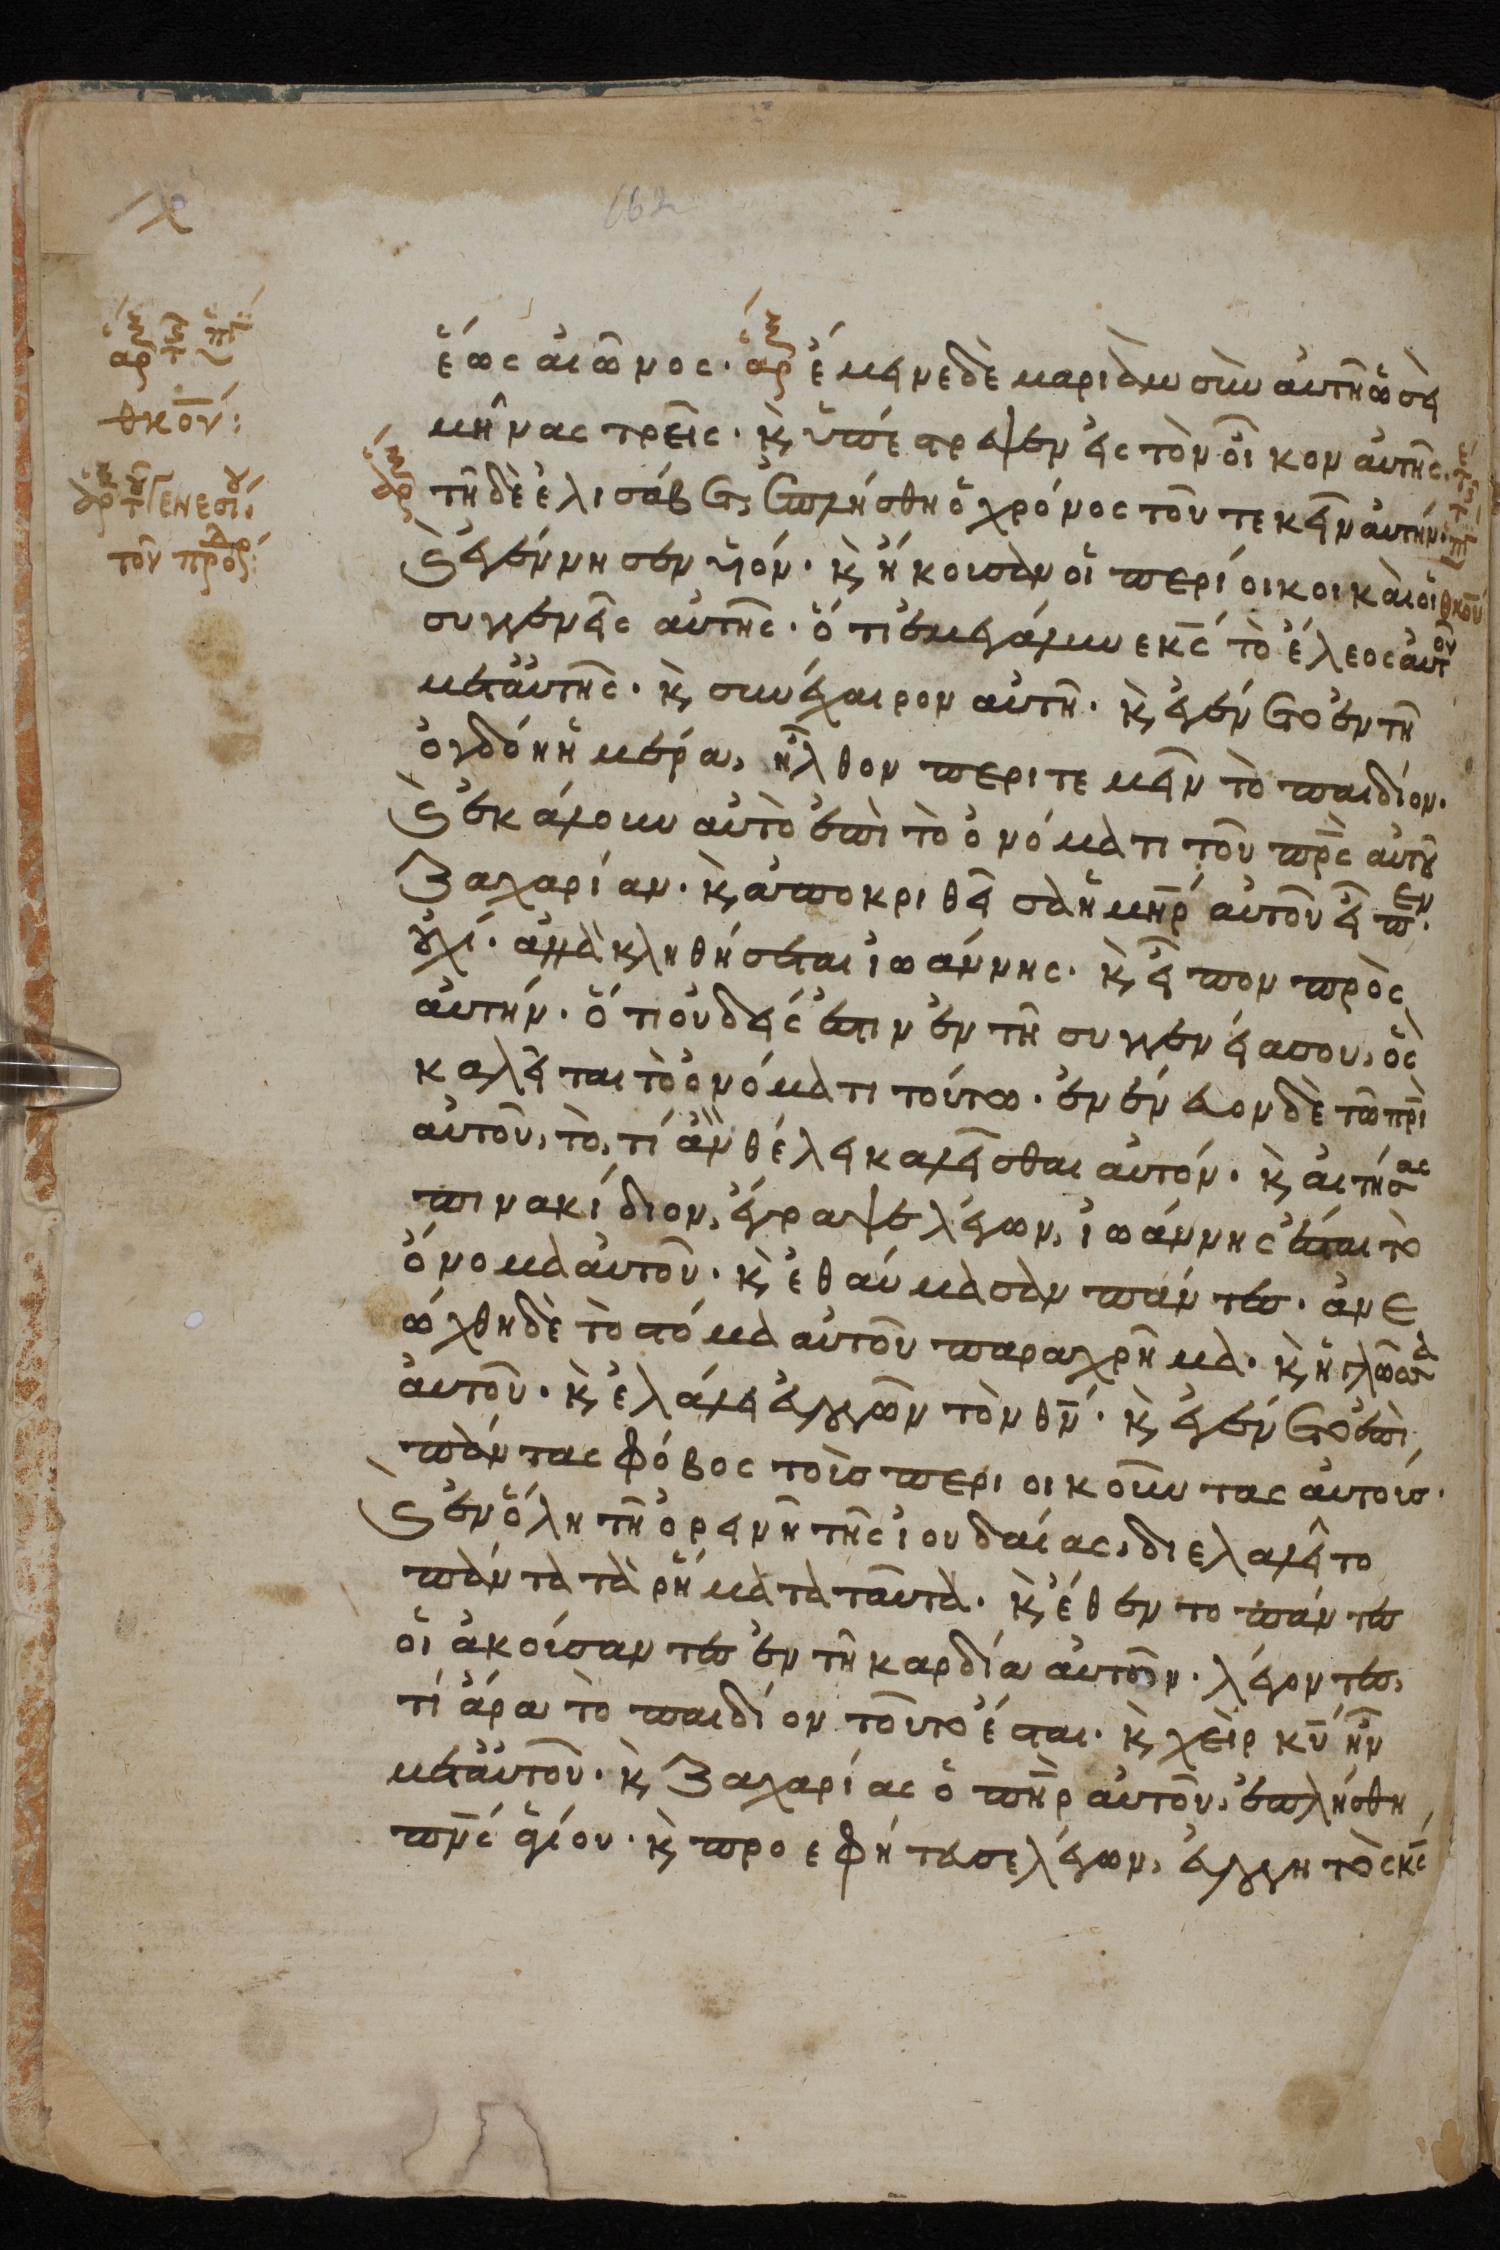 ἕως αἰῶνος. ἀρξ ἔμεινε δὲ μαριὰμ σὺν αὐτῆ ὡσεὶ
μῆνας τρεῖς. κ, ὑπέστρεψεν εἰς τὸν οἶκον αὐτῆς.
τῆ δὲ ἐλισάβετ, ἐπλήσθη ὁ χρόνος τοῦ τεκεῖν αὐτήν.
κ ἐγέννησεν υἱόν. κ, ἤκουσαν οἱ περίοικοι καὶ οἱ
συγγενεῖς αὐτῆς. ὅτι ἐμεγάλυνε κς τὸ ἔλεος αὐτοῦ
μετ αὐτῆς. κ, συνέχαιρον αὐτῆ. κ, ἐγένετο ἐν τῆ
ὀγδόη ἡμέρα, ἦλθον περιτεμεῖν τὸ παιδίον.
κ ἐκάλουν αὐτὸ ἐπὶ τὸ ὀνόματι τοῦ πρς αὐτοῦ
Ζαχαρίαν. κ, ἀποκριθεῖσα ἡ μηρ αὐτοῦ εἶπεν.
οὐχί. ἀλλὰ κληθήσεται ἰωάννης. κ, εἶπον πρὸς
αὐτήν. ὅτι οὐδείς ἐστιν ἐν τῆ συγγενεία σου, ὃς
καλεῖται τὸ ὀνόματι τούτω. ἐνένευον δὲ τῶ πρὶ
αὐτοῦ, τὸ, τί ἂν θέλει καλεῖσθαι αὐτόν. κ, αἰτήσας
πινακίδιον, ἔγραψε λέγων, ἰωάννης ἔσται τὸ
ὄνομα αὐτοῦ. κ, ἐθαύμασαν πάντες. ἀνε
ώχθη δὲ τὸ στόμα αὐτοῦ παραχρῆμα. κ, ἡ γλῶσσα
αὐτοῦ. κ, ἐλάλει εὐλογῶν τὸν θν. κ, ἐγένετο ἐπὶ
πάντας φόβος τοὺς περιοικοῦντας αὐτούς.
κ ἐν ὅλη τῆ ὀρεινῆ τῆς ἰουδαίας, διελαλεῖτο
πάντα τὰ ῥήματα ταῦτα. κ, ἔθεντο πάντες
οἱ ἀκούσαντες ἐν τῆ καρδία αὐτῶν. λέγοντες,
τί ἄρα τὸ παιδίον τοῦτο ἔσται. κ, χεὶρ κυ ἦν
μετ αὐτοῦ. κ, Ζαχαρίας ὁ πηρ αὐτοῦ, ἐπλήσθη
πνς ἁγίου. κ, προεφήτευσε λέγων, εὐλογητὸς κς